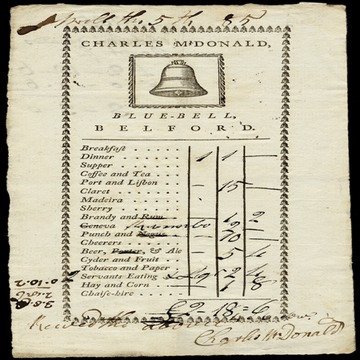 5th 85
CHARLES McDONALD,
BLUE-BELL,
BELFORD.
Breakfast
Dinner 1 1 —
Supper
Coffee and Tea
Port and Lisbon — 15 —
Claret
Madeira
Sherry
Brandy and Rum 2
Geneva
Punch and Negus — 10 —
Cheerers
Beer, Porter, & Ale — 5
Cyder and Fruit
Tobacco and Paper
Servants Eating
Hay and Corn 8
Chaise-hire
£2 18 6
Charles McDonald